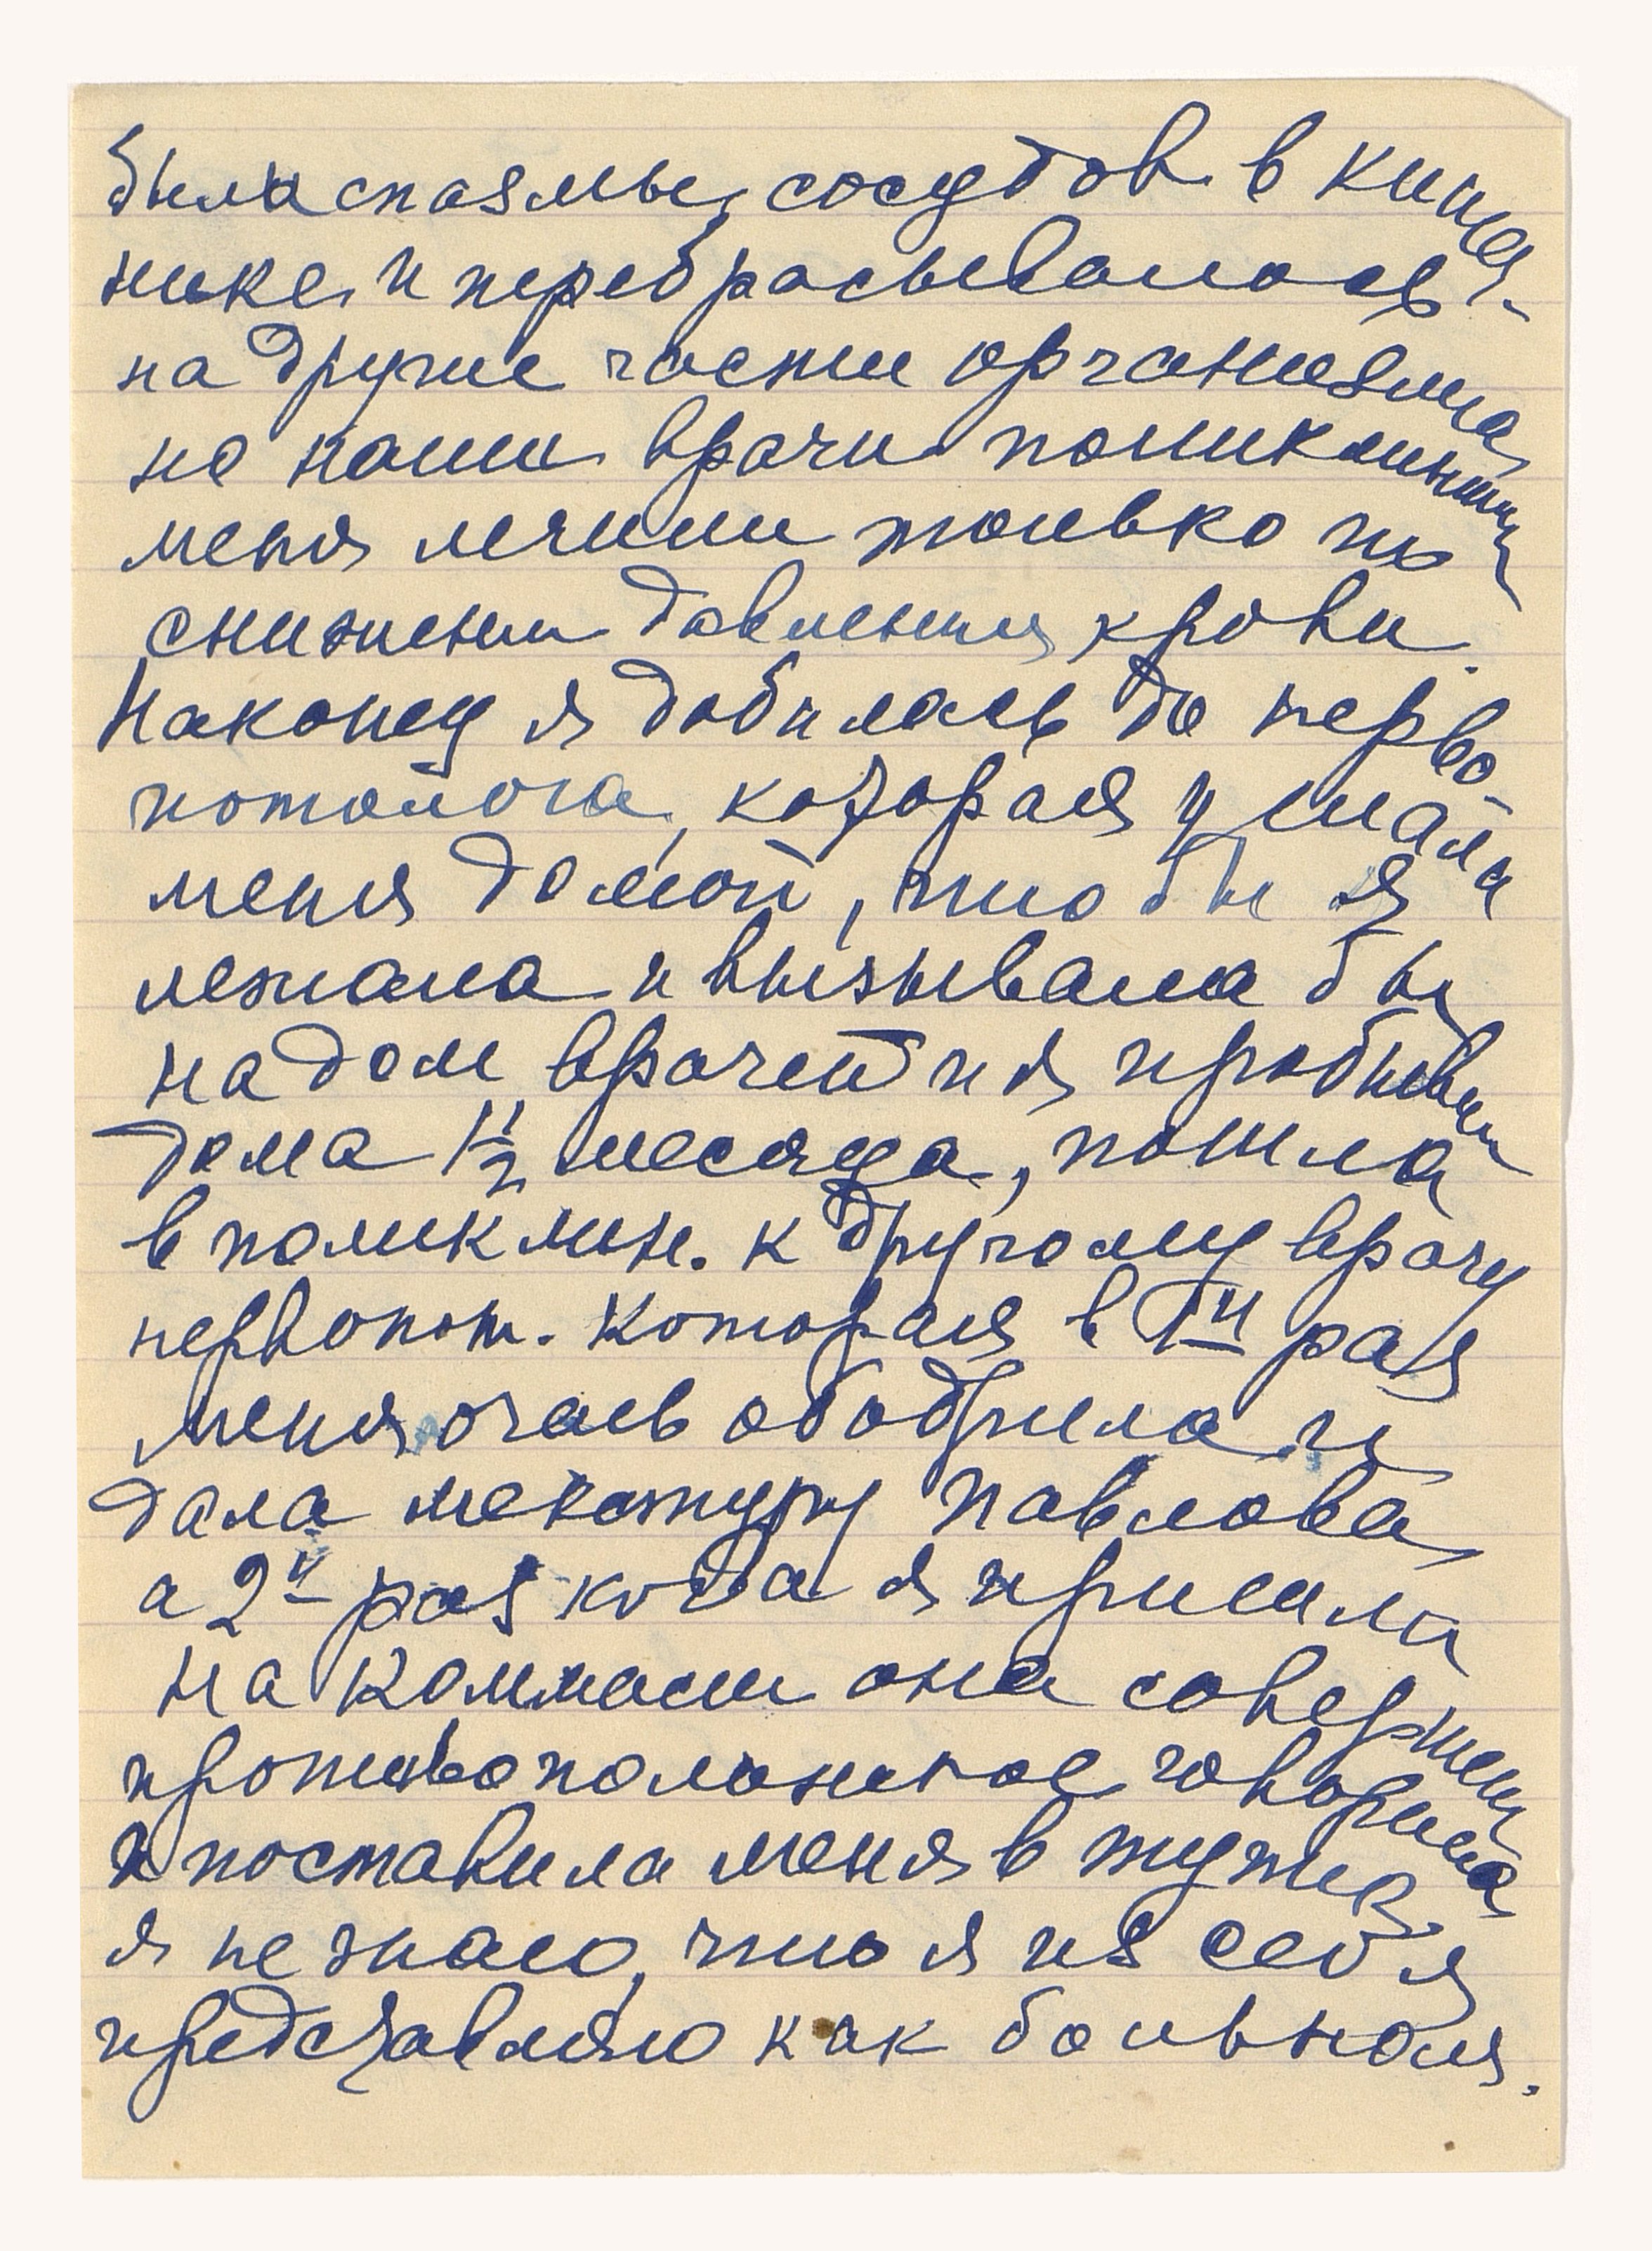 были спазмы, сосудов в кишеч-
нике и перебрасывалось
на другие части организма
но наши врачи поликлиники
меня лечили только по
снижении давления крови.
Наконец я добилась до нерво-
потолога, которая услала
меня домой, что бы я
лежала и вызывала бы
на дом врачей и я пробывши
дома 1½ месяца, пошла
в поликлин. к другому врачу
нервопот. которая в 1ый раз
меня очень ободрила и
дала мекстуру Павлова,
а 2й раз когда я пришла
на Коммисси она совершен
противоположное говорила
и поставила меня в тупик
я не знаю, что я из себя
представляю как больная.